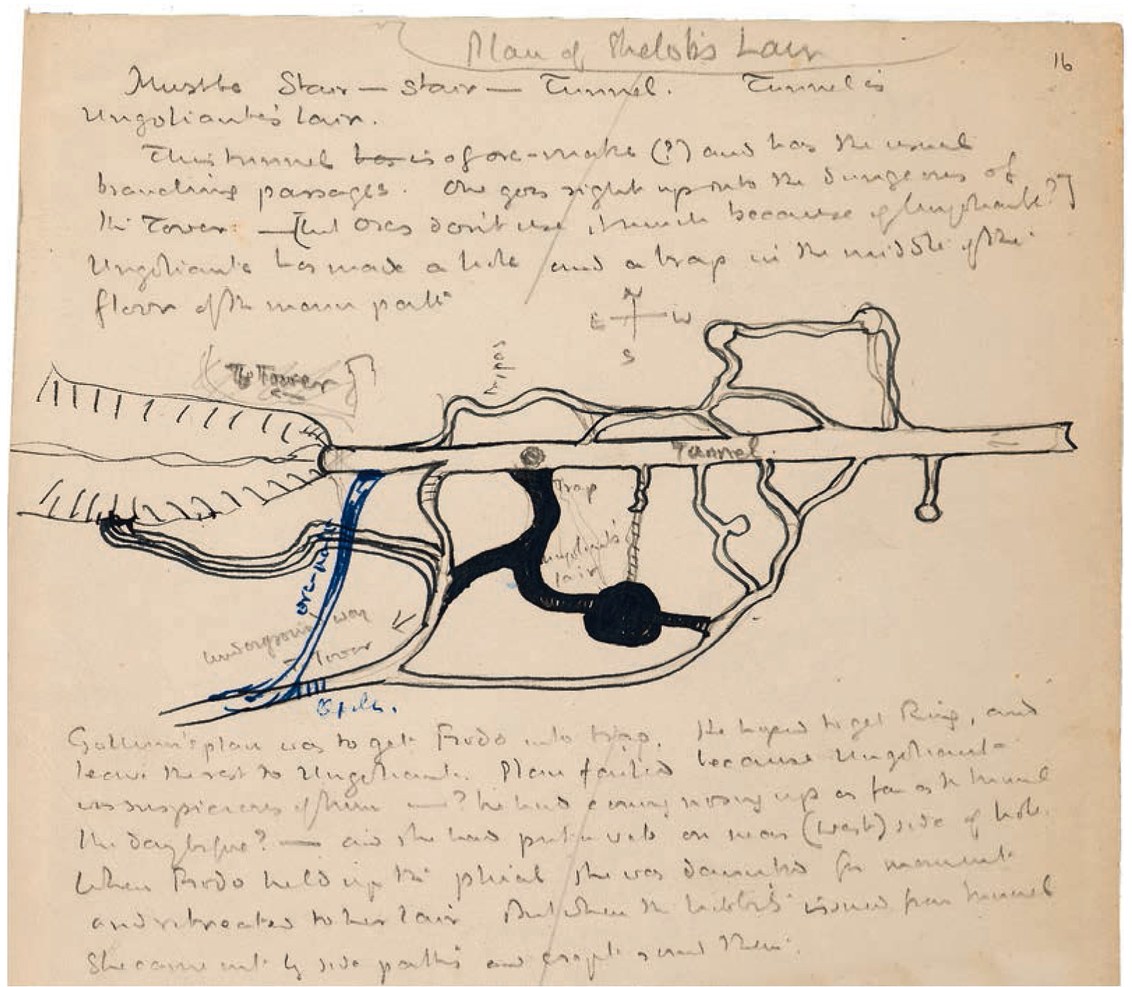 Plan of Shelob's Lair
16
Must be Stair — stair — Tunnel. Tunnel is
Ungoliante's lair.
This tunnel is of orc-make (?) and has the usual
branching passages. One goes right up into the dungeons of
the Tower — [but orcs don't use it much because of Ungoliante?]
Ungoliante has made a hole and a trap in the middle of the
floor of the main path
N
E W
S
To Tower
Trap
Tunnel
Trap
Ungoliante's
lair
orc-path
underground way
to Tower
Gollum's plan was to get Frodo into trap. He hoped to get Ring, and
leave the rest to Ungoliante. Plan failed because Ungoliante
was suspicious of him — ? he had come nosing up as far as the tunnel
the day before? — and she had put webs on near (west) side of hole.
When Frodo held up the phial she was daunted for moment
and retreated to her lair. But when the hobbits issued from tunnel
she came out by side paths and crept round them.